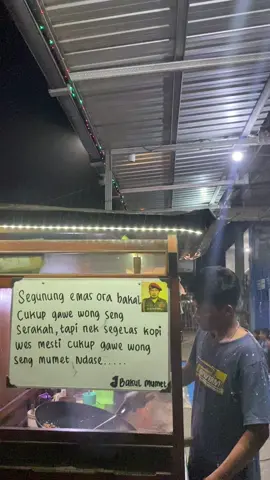 Segunung emas ora bakal
Cukup gawe wong seng
Serakah, tapi nek segelas kopi
wes mesti cukup gawe wong
seng mumet Ndase.....
Bakul mumet